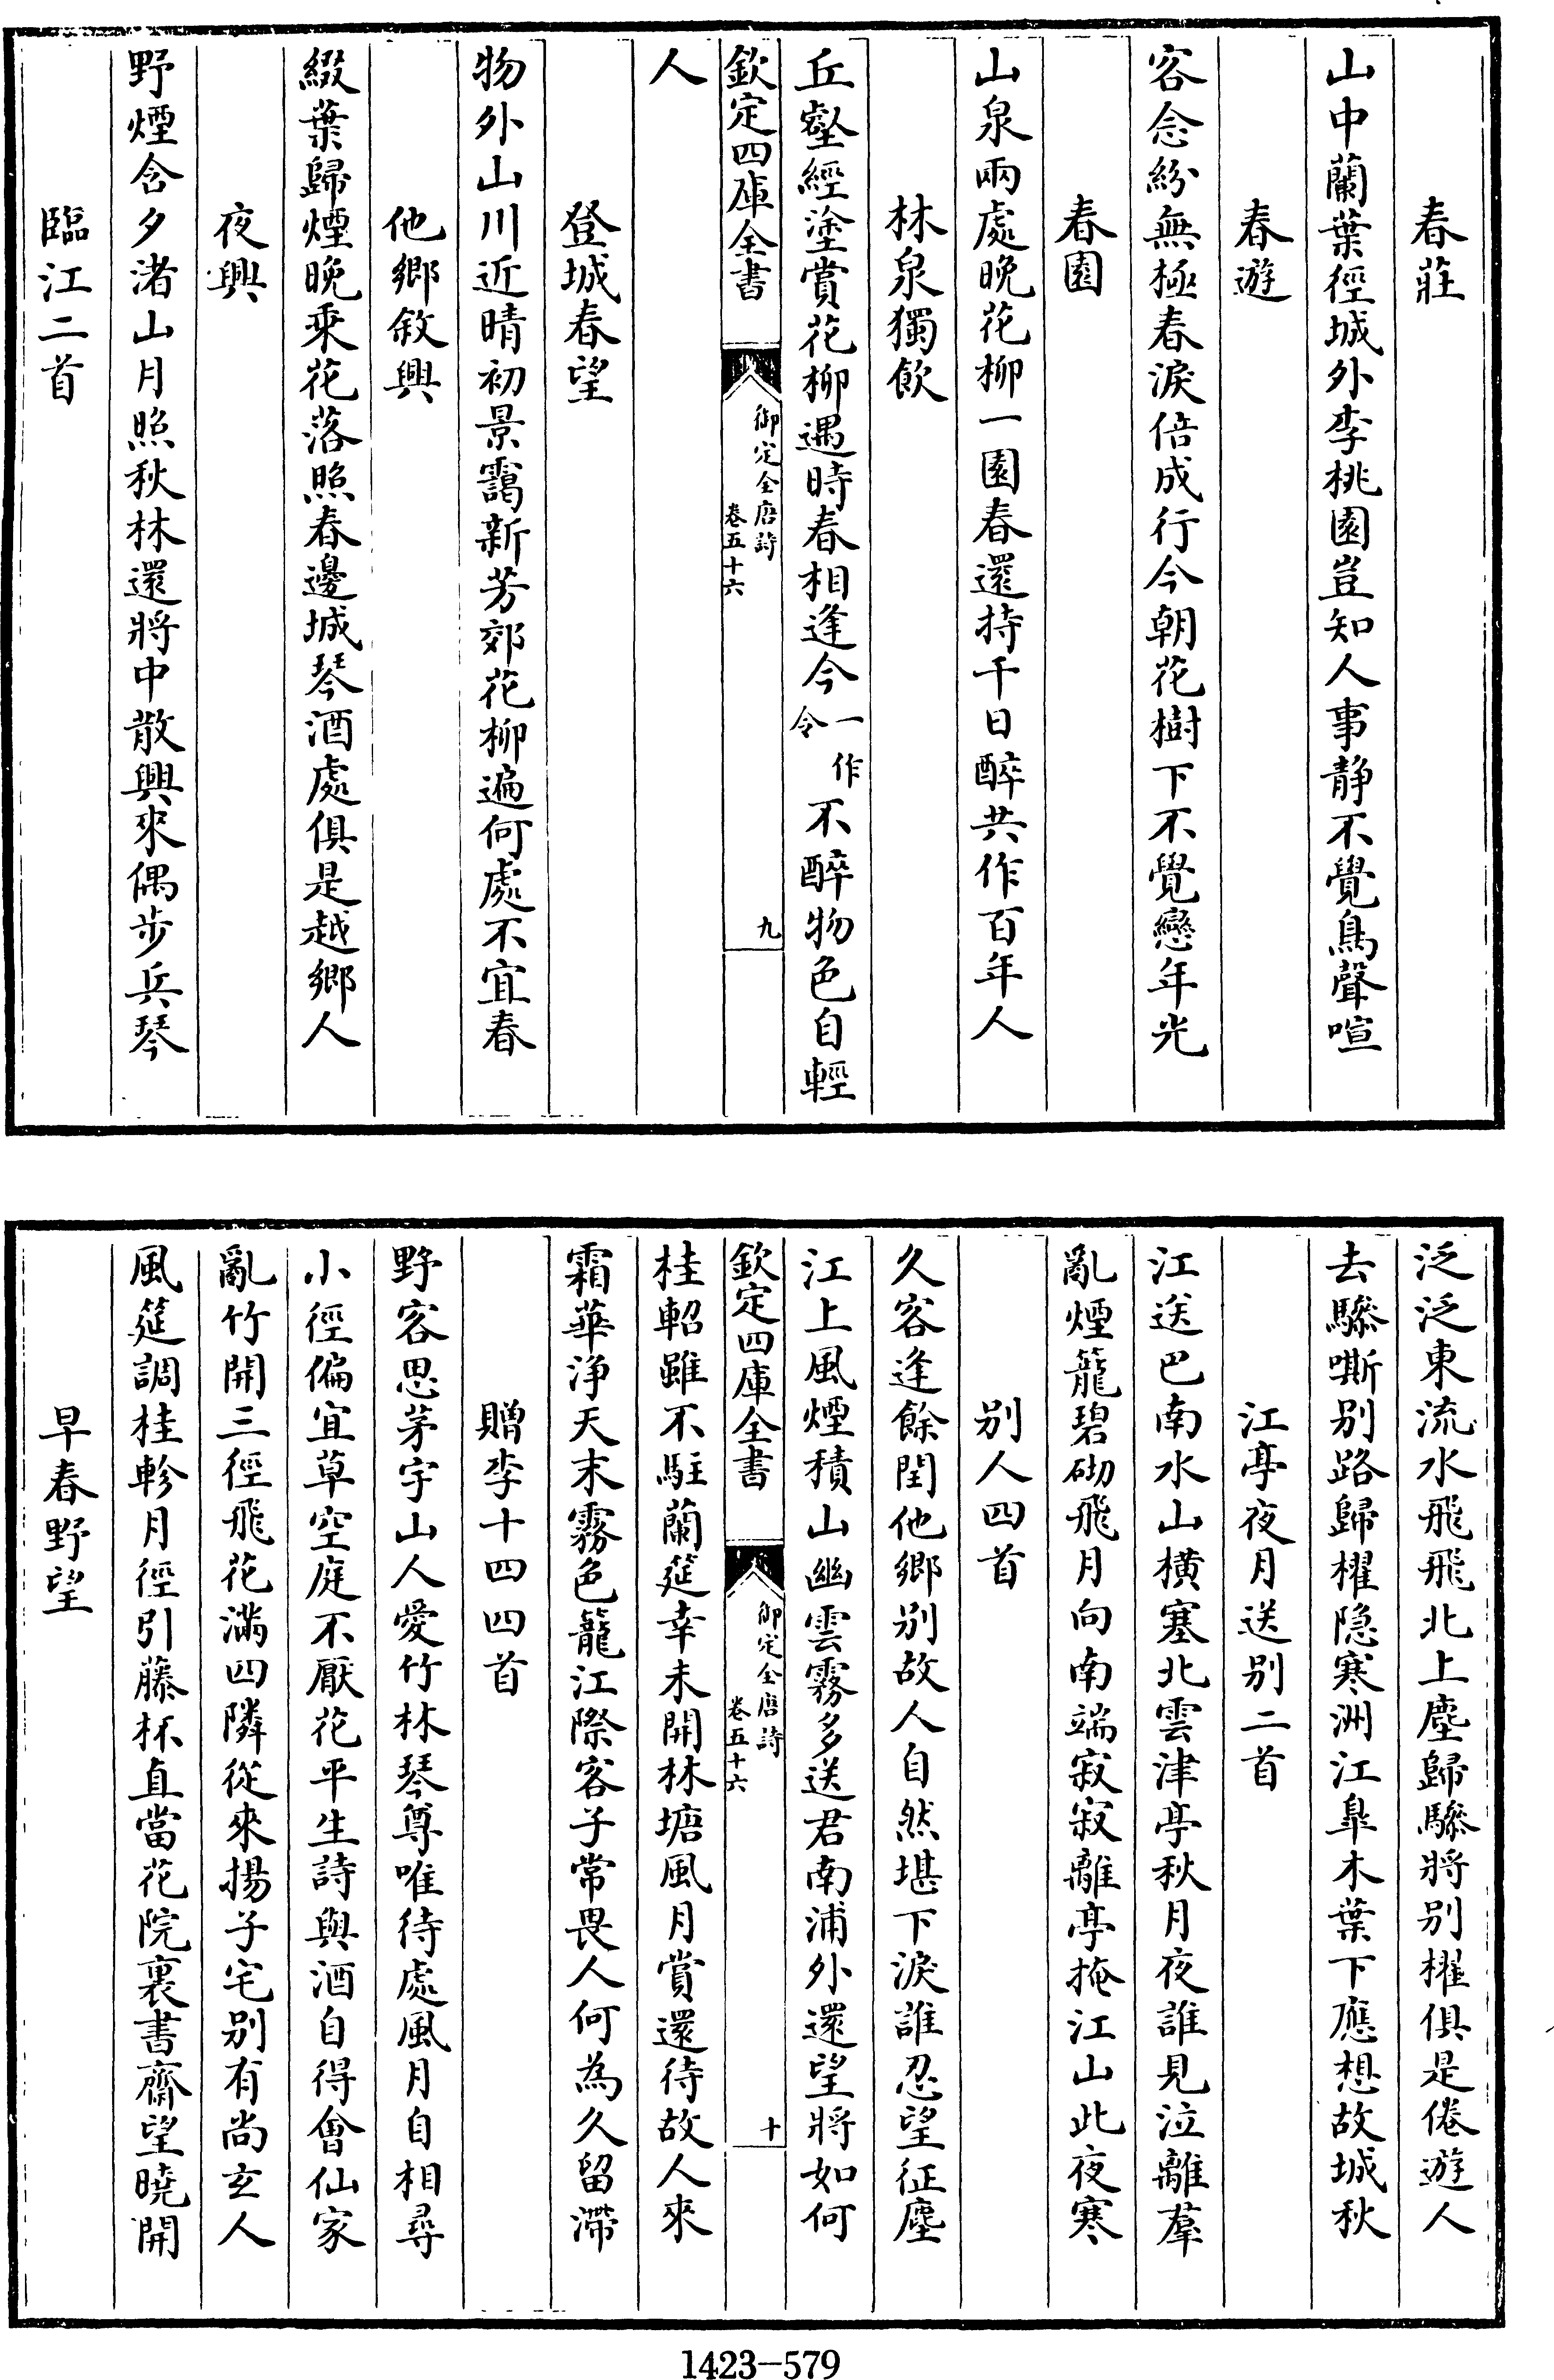 春莊
山中蘭葉徑城外李桃園豈知人事静不覺鳥聲喧
春遊
客念紛無極春淚倍成行今朝花樹下不覺戀年光
春園
山泉兩處晚花柳一園春還持千日醉共作百年人
林泉獨飲
丘壑經塗賞花柳遇時春相逢今一作令不醉物色自輕
欽定四庫全書
御定全唐詩
卷五十六
九
人
登城春望
物外山川近晴初景靄新芳郊花柳遍何處不宜春
他鄉敘興
綴葉歸煙晚乘花落照春邊城琴酒處俱是越鄉人
夜興
野煙含夕渚山月照秋林還將中散興來偶步兵琴
臨江二首
泛泛東流水飛飛北上塵歸驂將别櫂俱是倦遊人
去驂嘶别路歸櫂隐寒洲江臯木葉下應想故城秋
江亭夜月送别二首
江送巴南水山横塞北雲津亭秋月夜誰見泣離羣
亂煙籠碧砌飛月向南端寂寂離亭掩江山此夜寒
别人四首
久客逢餘閏他鄉别故人自然堪下淚誰忍望征塵
江上風煙積山幽雲霧多送君南浦外還望將如何
欽定四庫全書
御定全唐詩
卷五十六
十
桂軺雖不駐蘭筵幸未開林塘風月賞還待故人來
霜華浄天末霧色籠江際客子常畏人何為久留滯
贈李十四四首
野客思茅宇山人愛竹林琴尊唯待處風月自相尋
小徑偏宜草空庭不厭花平生詩與酒自得會仙家
亂竹開三徑飛花滿四隣從來揚子宅别有尚玄人
風筵調桂軫月徑引藤杯直當花院裏書齋望曉開
早春野望
1423-579